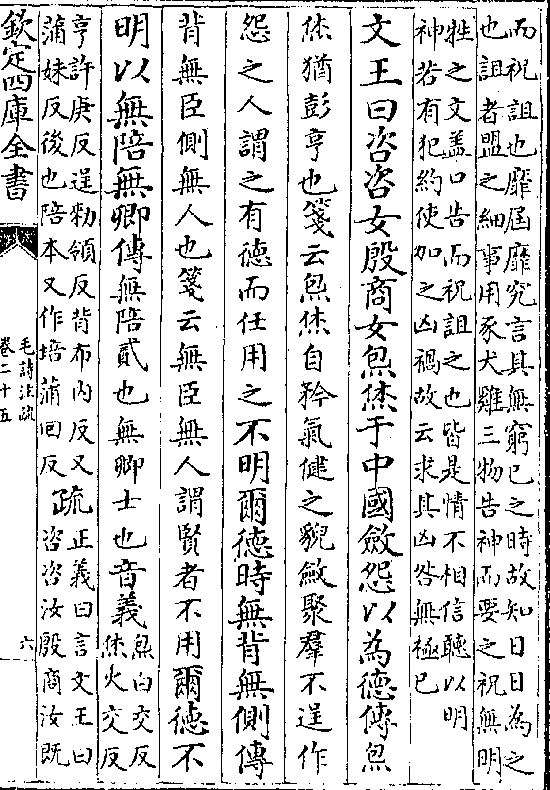 而祝詛也靡屆靡究言其無窮已之時故知日日為之
也詛者盟之細事用豕犬雞三物告神而要之祝無明
牲之文蓋口告而祝詛之也皆是情不相信聽以明
神若有犯約使加之凶禍故云求其凶咎無極已
文王曰咨咨女殷商女炰烋于中國斂怨以為德傳炰
烋猶彭亨也箋云炰烋自矜氣健之貌斂聚羣不逞作
怨之人謂之有德而任用之不明爾德時無背無側傳
背無臣側無人也箋云無臣無人謂賢者不用爾德不
明以無陪無卿傳無陪貳也無卿士也音義炰白交反
烋火交反
亨許庚反逞勑領反背布內反又
蒲妹反後也陪本又作培蒲回反疏正義曰言文王曰
咨咨汝殷商汝既
欽定四庫全書
毛詩注疏
卷二十五
六